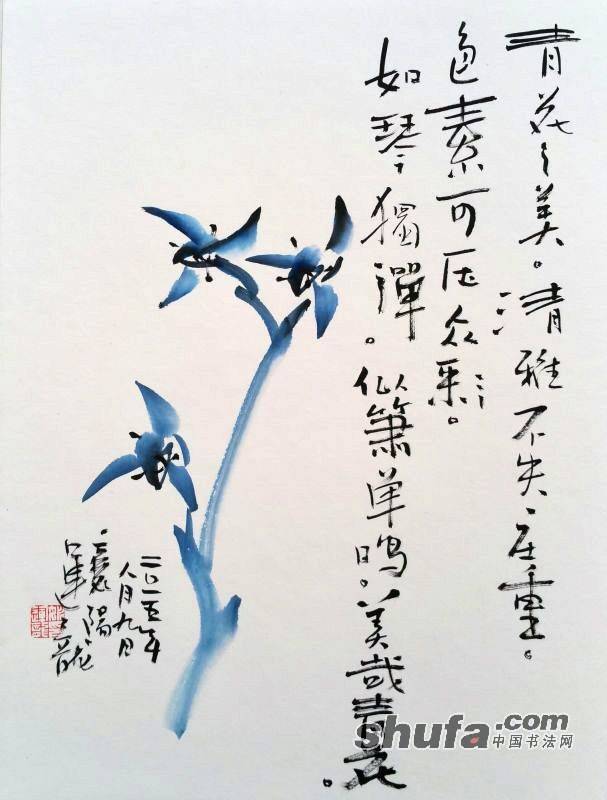 青花之美。清雅不失庄重。
色素可压众彩。
如琴獨彈。似箫单鸣。美哉青花。
二〇一五年
八月九日
襄陽
shufa.com
中国书法网